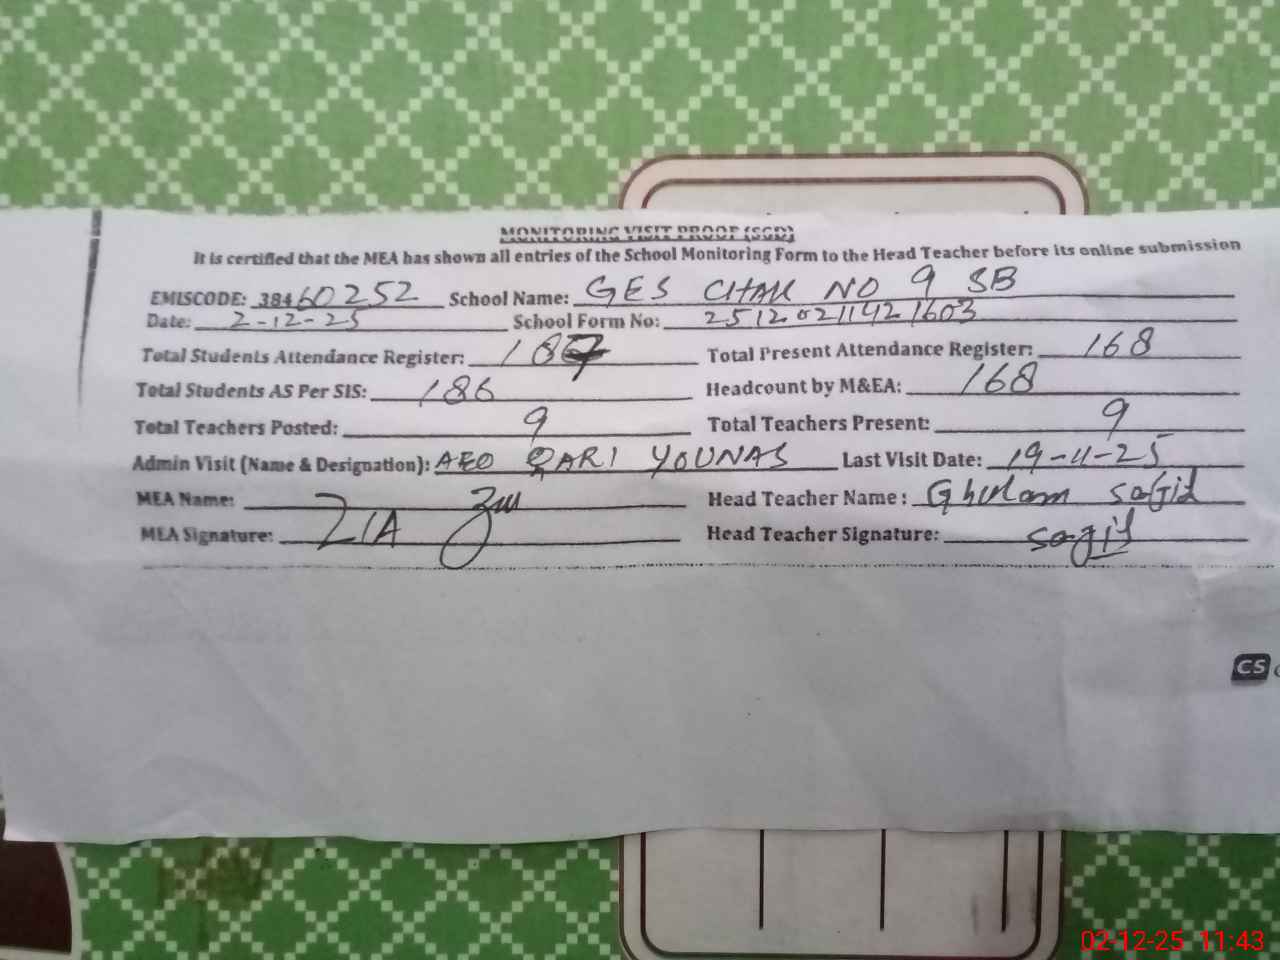 MONITORING VISIT PROOF (SGD)
It is certified that the MEA has shown all entries of the School Monitoring Form to the Head Teacher before its online submission
EMISCODE: 38460252 School Name: GES CHAK NO 9 SB
Date: 2-12-25 School Form No: 25120211421603
Total Students Attendance Register: 187 Total Present Attendance Register: 168
Total Students AS Per SIS: 186 Headcount by M&EA: 168
Total Teachers Posted: 9 Total Teachers Present: 9
Admin Visit (Name & Designation): AEO QARI YOUNAS Last Visit Date: 19-11-25
MEA Name: Head Teacher Name: Ghulam sajid
MEA Signature: ZIA Head Teacher Signature: sajid
CS
02-12-25 11:43